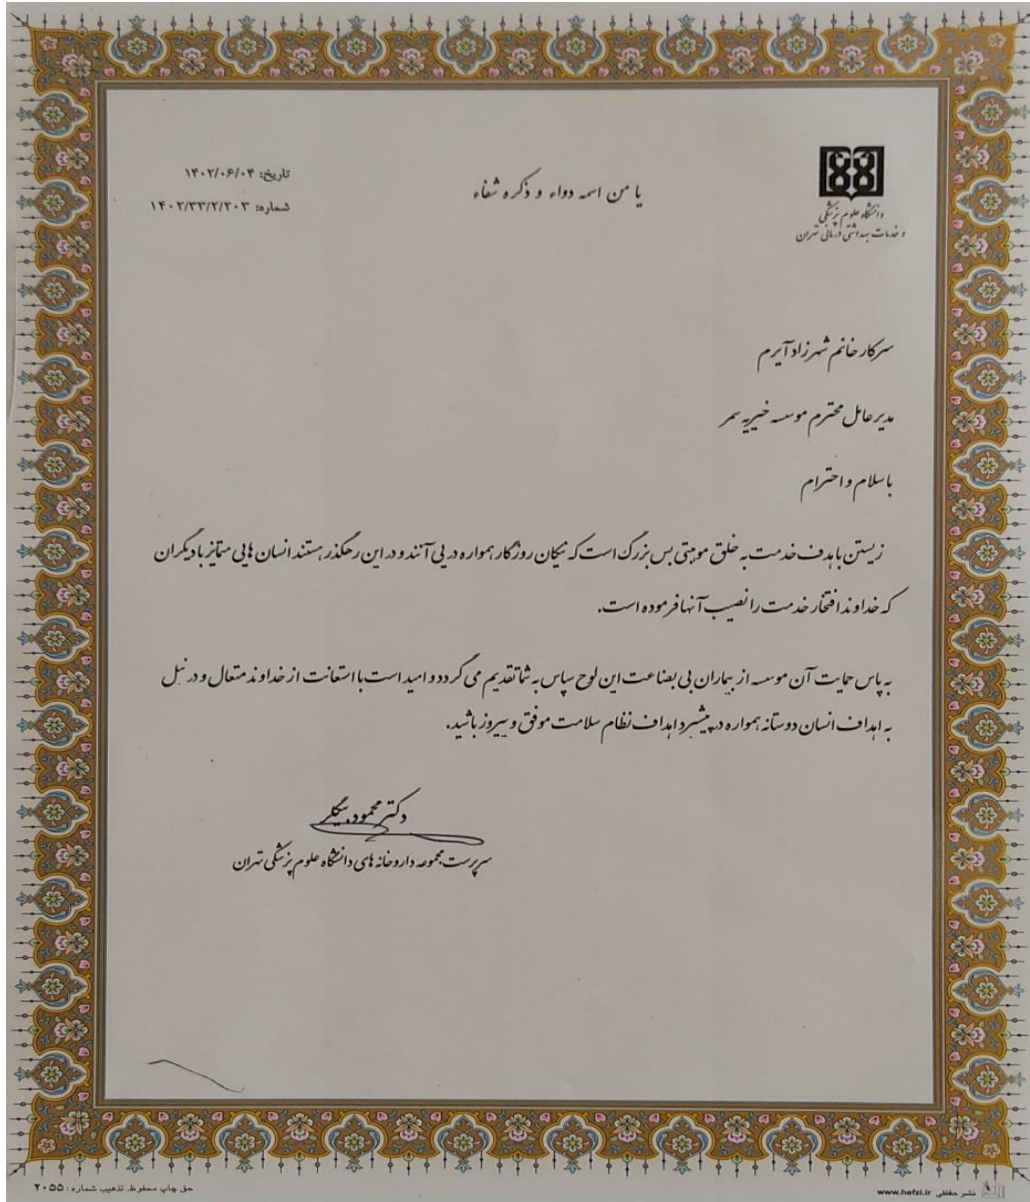 دانشگاه علوم پزشکی
و خدمات بهداشتی درمانی تهران
یا من اسمه دواء و ذکره شفاء
تاریخ: ۱۴۰۲/۰۶/۰۴
شماره: ۱۴۰۲/۳۳/۲/۲۰۳
سرکار خانم شهرزاد آیرم
مدیر عامل محترم موسسه خیریه سمر
باسلام و احترام
زیستن باهدف خدمت به خلق موهبتی بس بزرگ است که نیکان روزگار همواره در پی آنند و در این رهگذر هستند انسان هایی متمایز با دیگران
که خداوند افتخار خدمت را نصیب آنها فرموده است.
به پاس حمایت آن موسسه از بیماران بی بضاعت این لوح سپاس به شما تقدیم می گردد و امید است با استعانت از خداوند متعال و در نیل
به اهداف انسان دوستانه همواره در پیشبرد اهداف نظام سلامت موفق و پیروز باشید.
دکتر محمود بیگلر
سرپرست مجموعه داروخانه های دانشگاه علوم پزشکی تهران
حق چاپ محفوظ. تذهیب شماره: ۲۰۵۵
www.hefzi.ir نشر حفظی